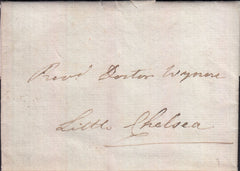 Revd Doctor Wynne
Little Chelsea